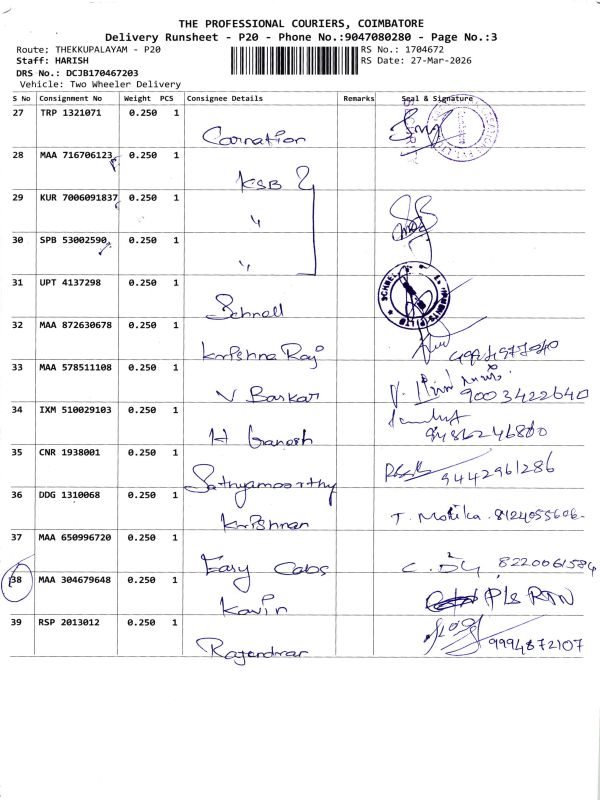 THE PROFESSIONAL COURIERS, COIMBATORE
Delivery Runsheet - P20 - Phone No.:9047080280 - Page No.:3
Route: THEKKUPALAYAM - P20
RS No.: 1704672
Staff: HARISH
RS Date: 27-Mar-2026
DRS No.: DCJB170467203
Vehicle: Two Wheeler Delivery
S No Consignment No Weight PCS Consignee Details Remarks Seal & Signature
27 TRP 1321071 0.250 1
Carnation
28 MAA 716706123 0.250 1
KSB
29 KUR 7006091837 0.250 1
"
30 SPB 53002590 0.250 1
"
31 UPT 4137298 0.250 1
Schnell
32 MAA 872630678 0.250 1
Krishna Raj
33 MAA 578511108 0.250 1
V Baskar 9003422640
34 IXM 510029103 0.250 1
H Ganesh
35 CNR 1938001 0.250 1
Sathyamoorthy 9442961286
36 DDG 1310068 0.250 1
Krishnan T. Monika. 8124055606.
37 MAA 650996720 0.250 1
Easy Cabs 8220061584
38 MAA 304679648 0.250 1
Kavin Pls RTN
39 RSP 2013012 0.250 1
Rajendran 9994872107